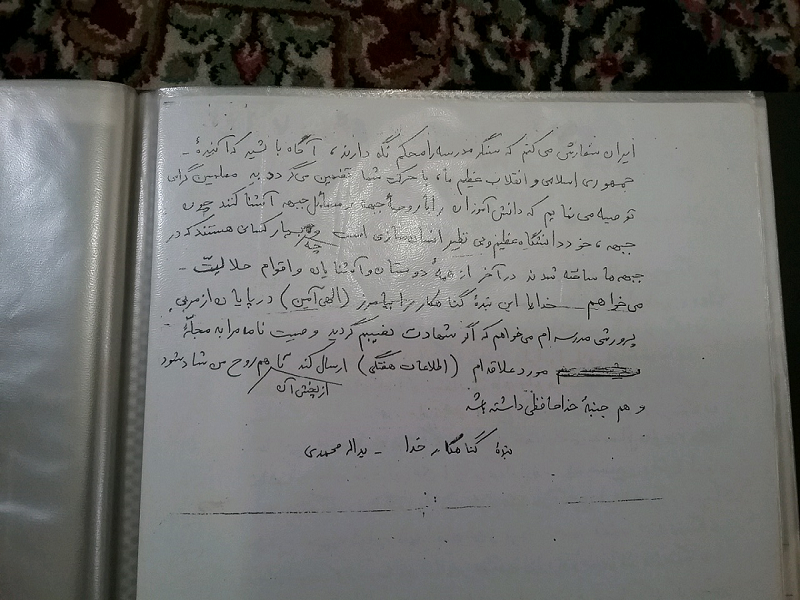 ایران سفارش می‌کنم که سنگر مدرسه را محکم نگه دارند، آگاه باشید که آیندهٔ
جمهوری اسلامی و انقلاب عظیم ما، با حرکت شما تضمین می‌گردد به معلمین گرامی
توصیه می‌نمایم که دانش‌آموزان را با روحیهٔ جبهه و مسائل جبهه آشنا کنند چون
جبهه، خود دانشگاه عظیم و بی نظیر انسان‌سازی است و چه بسیار کسانی هستند که در
جبهه‌ها ساخته شدند در آخر از همهٔ دوستان و آشنایان و اقوام حلالیت
می‌خواهم خدایا این بندهٔ گناهکار را بیامرز (الهی آمین) در پایان از مربی
پرورشی مدرسه‌ام می‌خواهم که اگر شهادت نصیبم گردید وصیت نامه مرا به مجلهٔ
مورد علاقه‌ام (اطلاعات هفتگی) ارسال کند تا از پخش آن هم روح من شاد شود
و هم جنبهٔ خداحافظی داشته باشد
بندهٔ گناهکار خدا - یداله محمدی